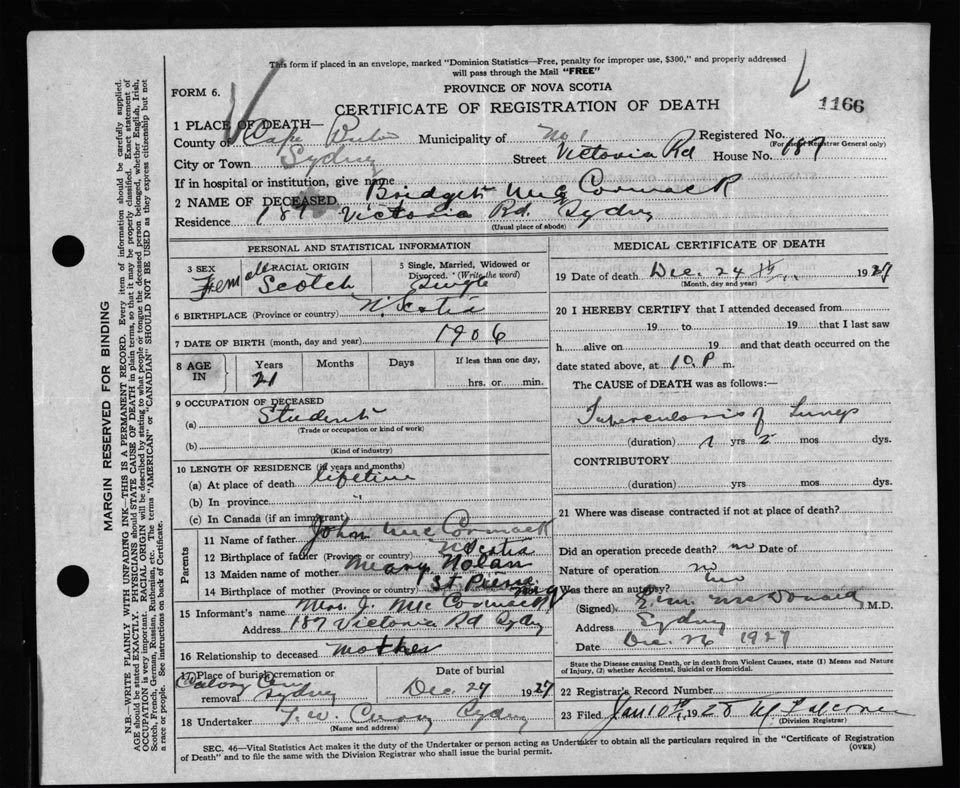 This form if placed in an envelope, marked "Dominion Statistics—Free, penalty for improper use, $300," and properly addressed
will pass through the Mail "FREE"
FORM 6.
PROVINCE OF NOVA SCOTIA
CERTIFICATE OF REGISTRATION OF DEATH
1166
1 PLACE OF DEATH—
County of Cape Municipality of No. 1 Registered No.
(For use of Registrar General only)
City or Town Sydney Street Victoria Rd House No. 187
If in hospital or institution, give name
2 NAME OF DECEASED Bridget McCormack
Residence 187 Victoria Rd. Sydney
(Usual place of abode)
PERSONAL AND STATISTICAL INFORMATION
3 SEX Female
4 RACIAL ORIGIN Scotch
5 Single, Married, Widowed or Divorced. (Write the word) Single
6 BIRTHPLACE (Province or country) N. Scotia
7 DATE OF BIRTH (month, day and year) 1906
8 AGE IN Years 21 Months Days If less than one day, hrs. or min.
9 OCCUPATION OF DECEASED
(a) Student
(Trade or occupation or kind of work)
(b)
(Kind of industry)
10 LENGTH OF RESIDENCE (in years and months)
(a) At place of death lifetime
(b) In province "
(c) In Canada (if an immigrant)
Parents
11 Name of father John McCormack
12 Birthplace of father (Province or country) N Scotia
13 Maiden name of mother Mary Nolan
14 Birthplace of mother (Province or country) St Pierre
15 Informant's name Mrs. J. McCormack
Address 187 Victoria Rd Sydney
16 Relationship to deceased mother
17 Place of burial, cremation or removal Sydney
Date of burial Dec. 27 1927
18 Undertaker T. W. Curry Sydney
(Name and address)
MEDICAL CERTIFICATE OF DEATH
19 Date of death Dec. 24 th 1927
(Month, day and year)
20 I HEREBY CERTIFY that I attended deceased from
19 to 19 that I last saw
h alive on 19 and that death occurred on the
date stated above, at 10 P m.
The CAUSE of DEATH was as follows:—
Tuberculosis of Lungs
(duration) 1 yrs 2 mos dys.
CONTRIBUTORY
(duration) yrs mos dys.
21 Where was disease contracted if not at place of death?
Did an operation precede death? no Date of
Nature of operation no
Was there an autopsy? no
(Signed) McDonald M.D.
Address Sydney
Date Dec. 26 1927
State the Disease causing Death, or in death from Violent Causes, state (1) Means and Nature
of Injury, (2) whether Accidental, Suicidal or Homicidal.
22 Registrar's Record Number
23 Filed Jan 10th, 1928
(Division Registrar)
SEC. 46—Vital Statistics Act makes it the duty of the Undertaker or person acting as Undertaker to obtain all the particulars required in the "Certificate of Registration
of Death" and to file the same with the Division Registrar who shall issue the burial permit.
(OVER)
MARGIN RESERVED FOR BINDING
N.B.—WRITE PLAINLY WITH UNFADING INK—THIS IS A PERMANENT RECORD. Every item of information should be carefully supplied.
AGE should be stated EXACTLY. PHYSICIANS should STATE CAUSE OF DEATH in plain terms, so that it may be properly classified. Exact statement of
OCCUPATION is very important. RACIAL ORIGIN will be described by stating to what people or tongue the deceased person belonged, whether English, Irish,
Scotch, French, German, Russian, Ruthenian, etc. The terms "AMERICAN" or "CANADIAN" SHOULD NOT BE USED as they express citizenship but not
a race or people. See instructions on back of Certificate.